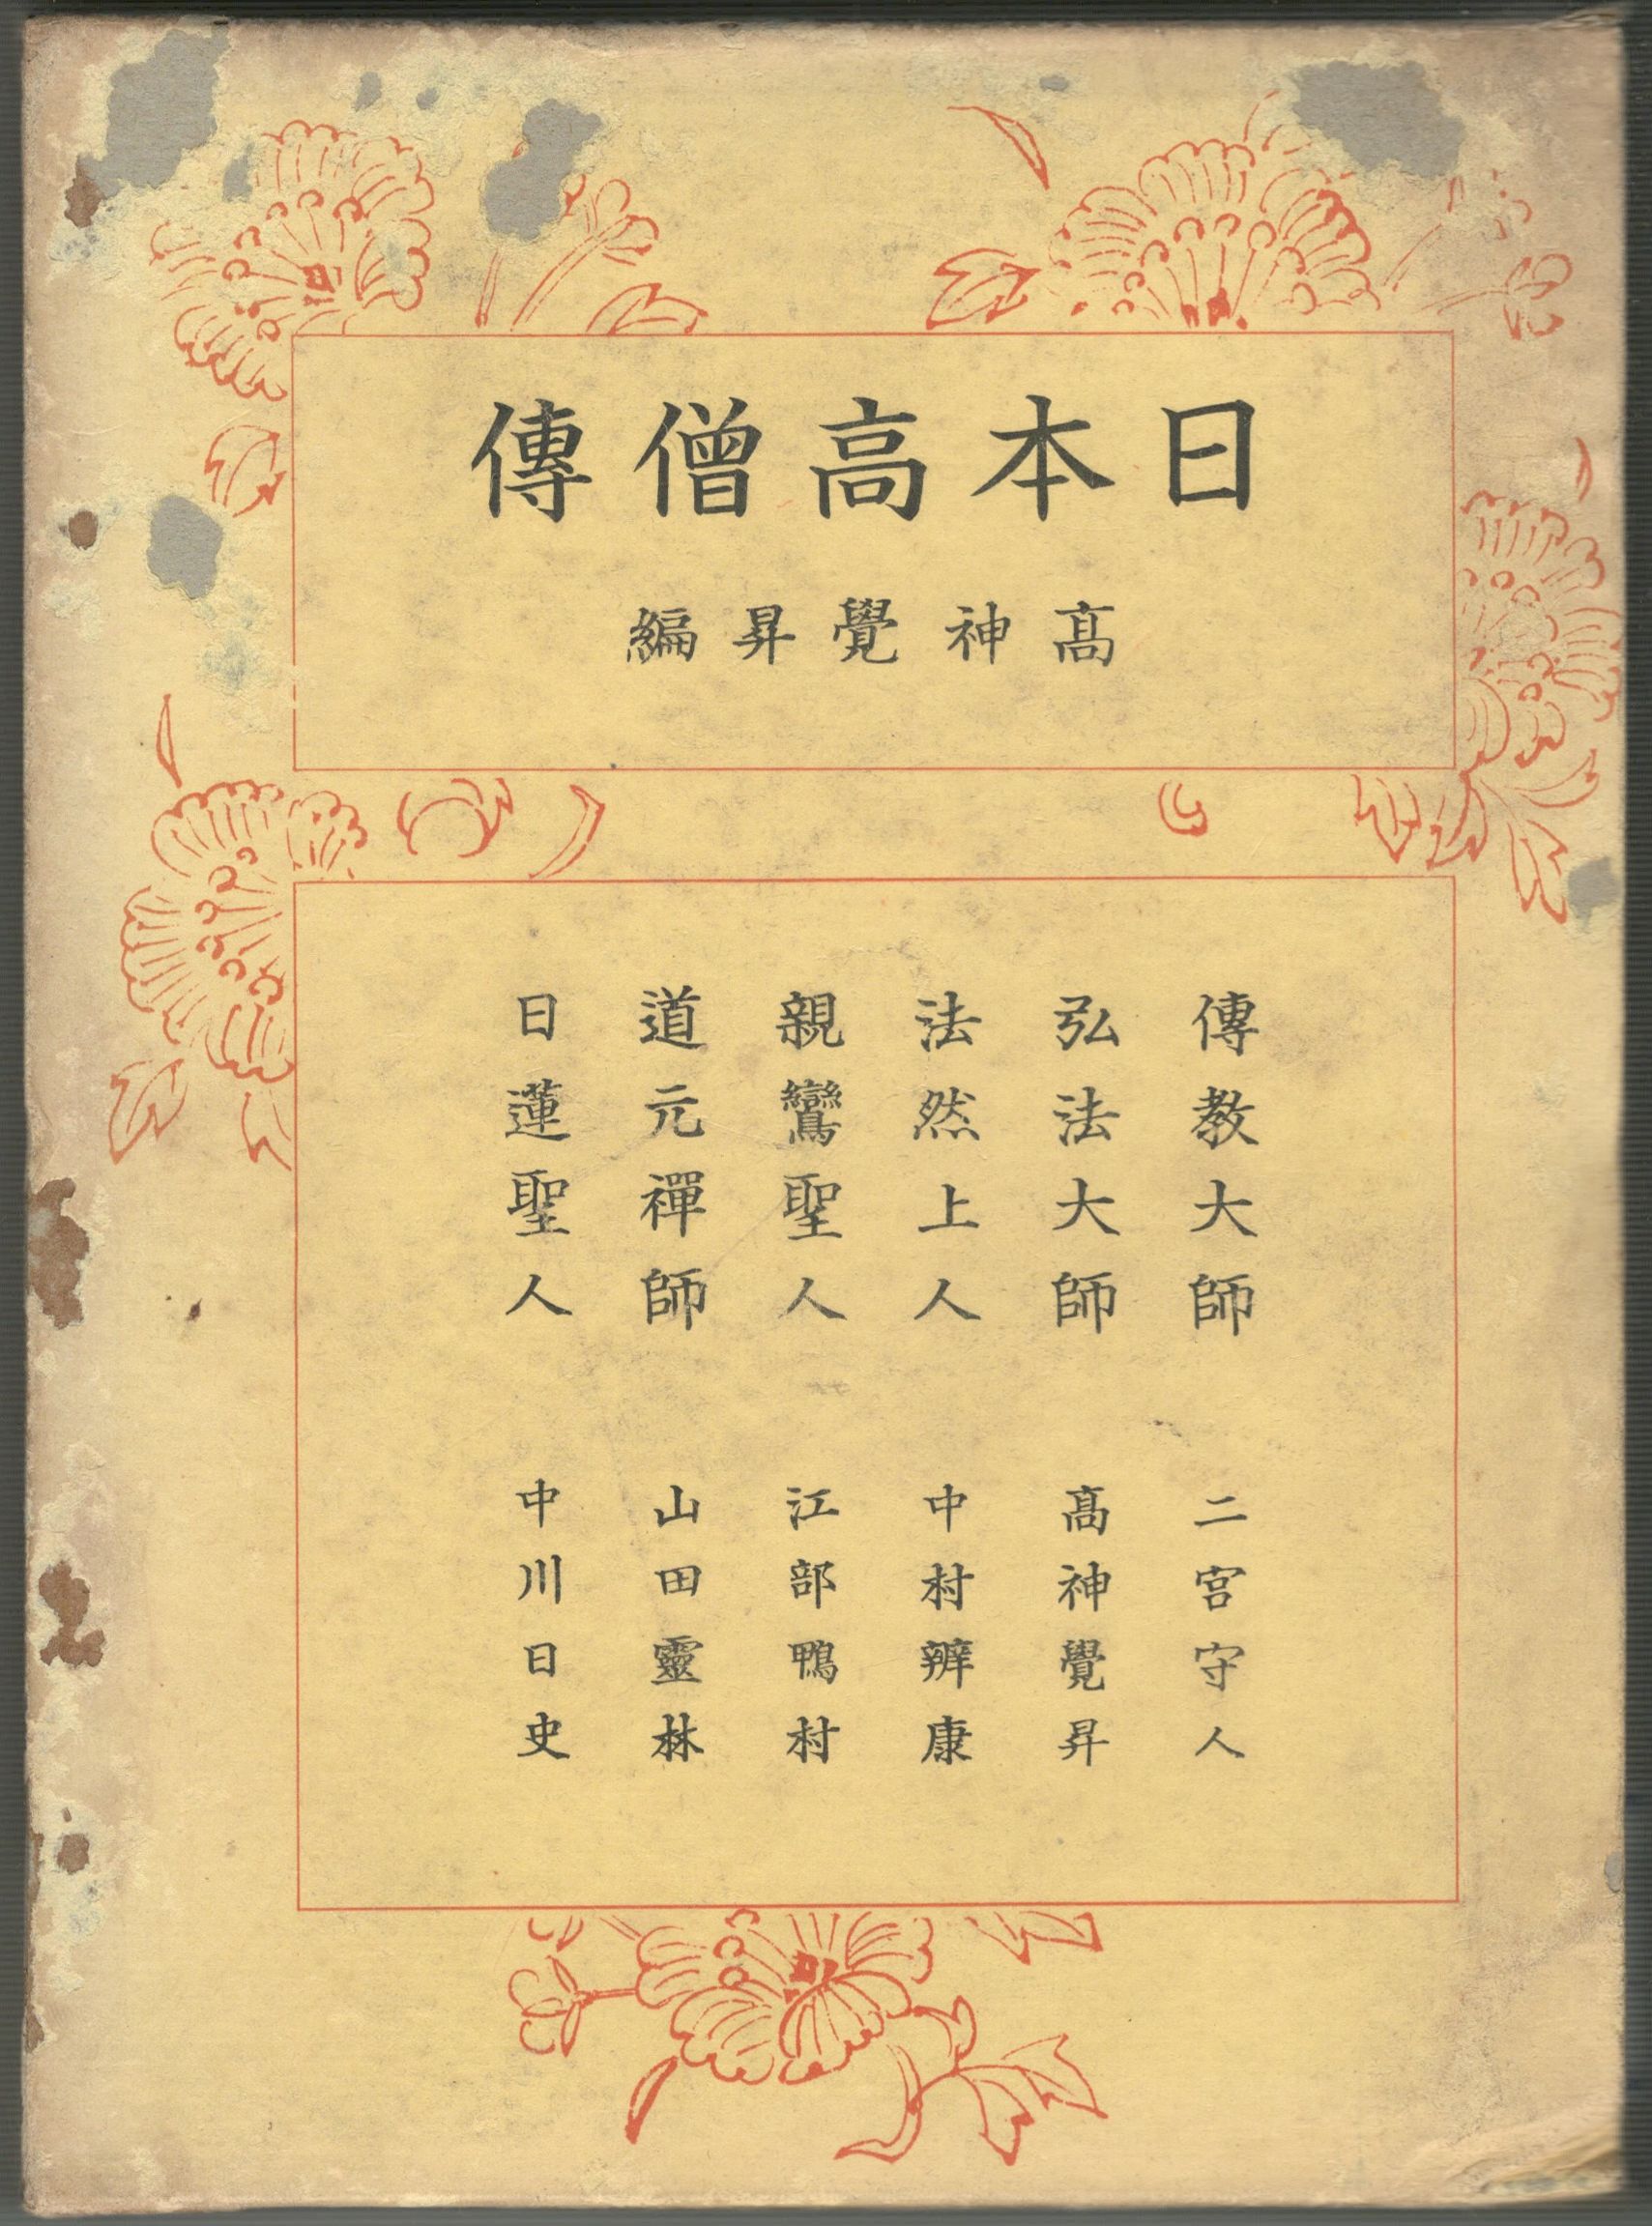 日本高僧傳
髙神覺昇編
傳教大師　二宮守人
弘法大師　髙神覺昇
法然上人　中村辨康
親鸞聖人　江部鴨村
道元禪師　山田靈林
日蓮聖人　中川日史